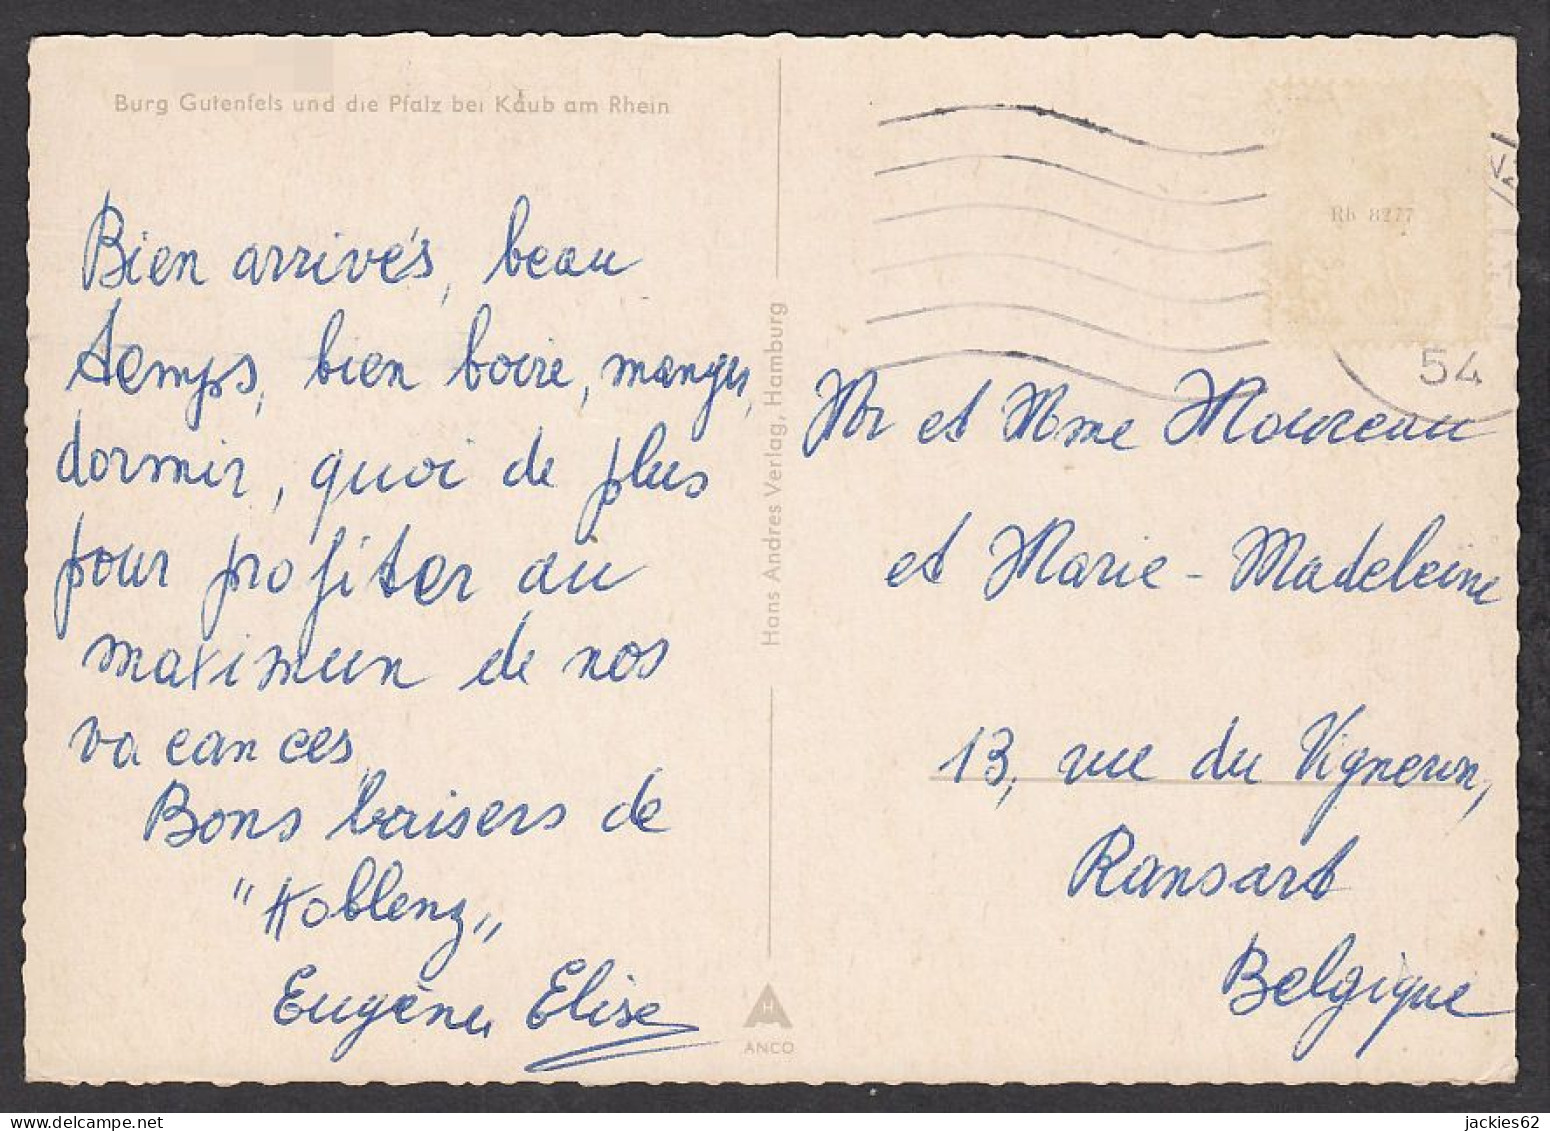 Burg Gutenfels und die Pfalz bei Kaub am Rhein
Bien arrivés, beau
temps, bien boire, manger,
dormir, quoi de plus
pour profiter au
maximun de nos
vacances.
Bons baisers de
"Koblenz"
Eugène, Elise
Hans Andres Verlag, Hamburg
ANCO
Rh 8277
54
Mr et Mme Moureau
et Marie-Madeleine
13, rue du Vigneron,
Ransart
Belgique
jackies62